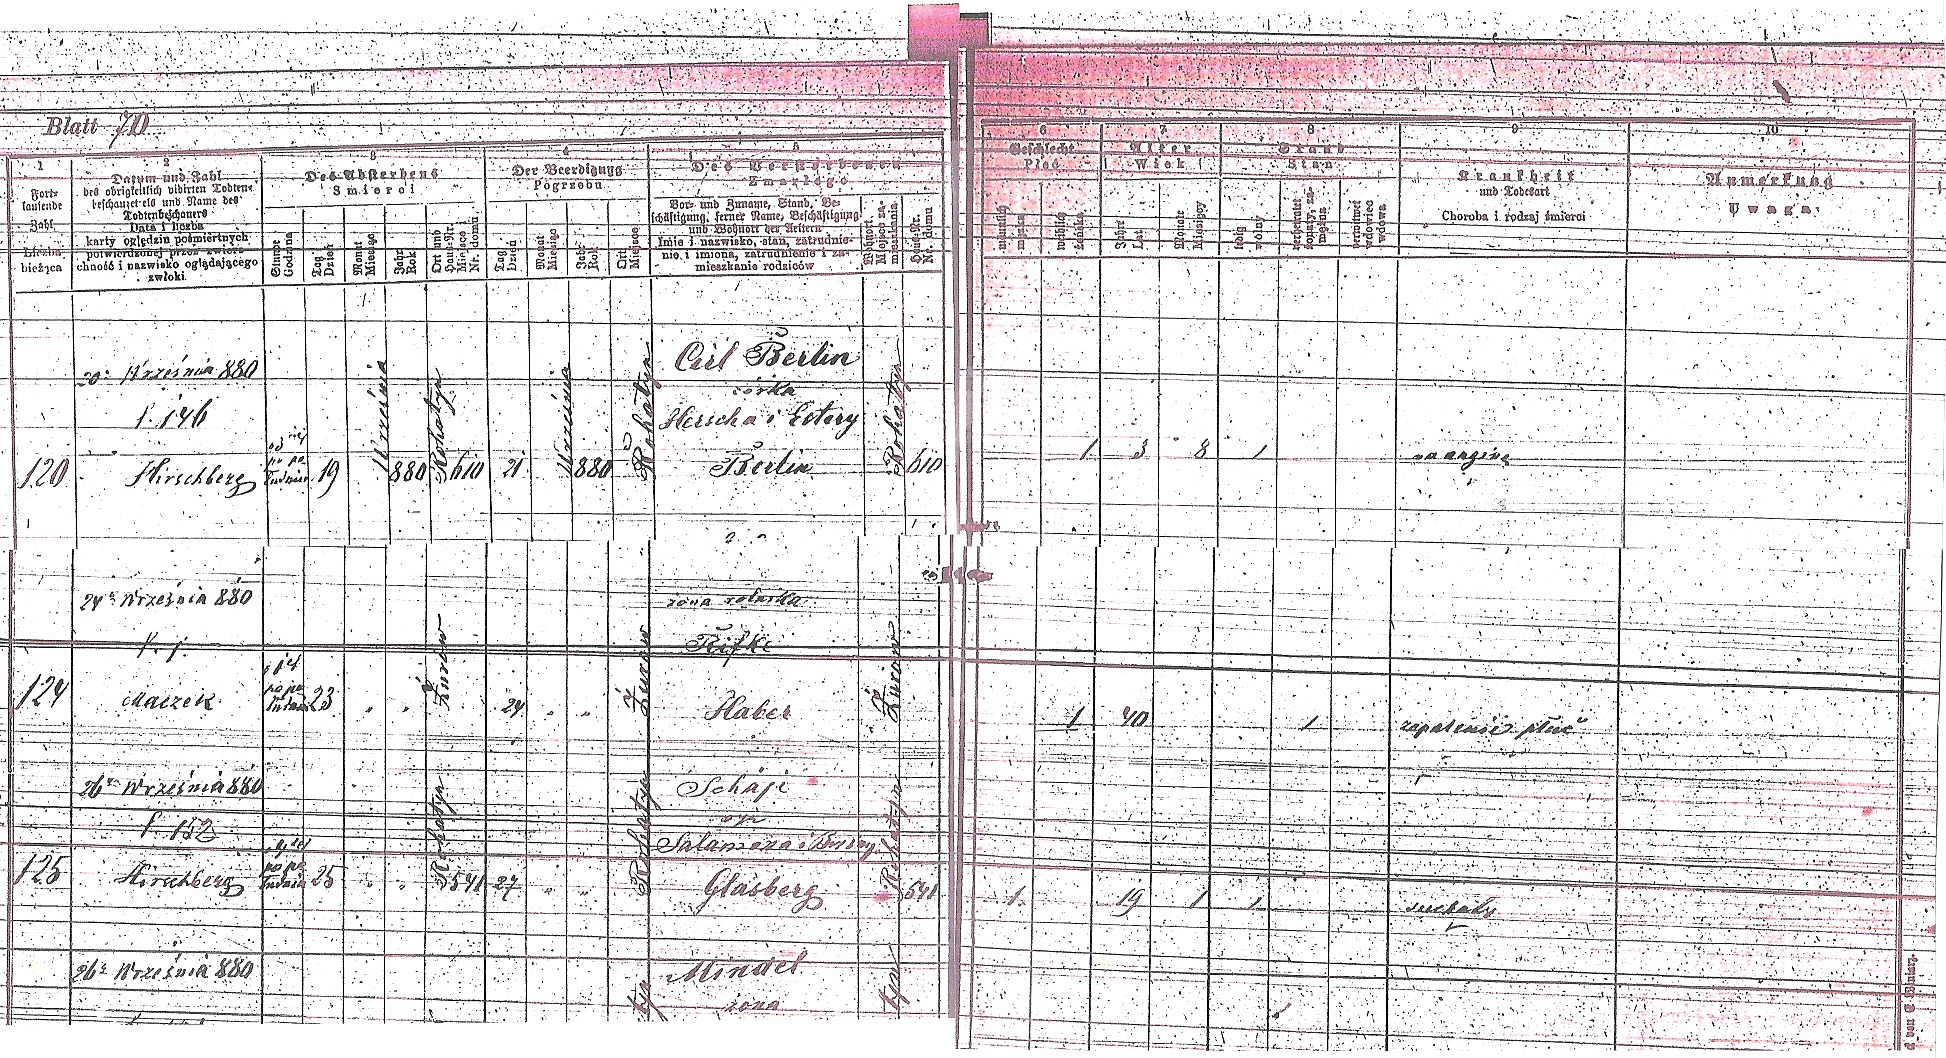 Blatt 70
1
2
3
4
5
6
7
8
9
10
Fortlaufende
Zahl
Liczba
bieżąca
Datum und Zahl
des obrigkeitlich vidirten Todten-
beschauzettels und Name des
Todtenbeschauers
Data i liczba
karty oględzin pośmiertnych
potwierdzonej przez zwierz-
chność i nazwisko oglądającego
zwłoki.
Des Absterbens
Śmierci
Stunde
Godzina
Tag
Dzień
Monat
Miesiąc
Jahr
Rok
Ort und
Haus-Nr.
Miejsce
Nr. domu
Der Beerdigung
Pogrzebu
Tag
Dzień
Monat
Miesiąc
Jahr
Rok
Ort
Miejsce
Des Verstorbenen
Zmarłego
Vor- und Zuname, Stand, Be-
schäftigung, ferner Name, Beschäftigung
und Wohnort der Aeltern
Imię i nazwisko, stan, zatrudnie-
nie, i imiona, zatrudnienie i za-
mieszkanie rodziców
Wohnort
Miejsce za-
mieszkania
Haus-Nr.
Nr. domu
Geschlecht
Płeć
männlich
męska
weiblich
żeńska
Alter
Wiek
Jahre
Lat
Monate
Miesięcy
Stand
Stan
ledig
wolny
verheiratet
żonaty, za-
mężna
verwitwet
wdowiec
wdowa
Krankheit
und Todesart
Choroba i rodzaj śmierci
Anmerkung
Uwaga.
20 Września 880
l. 146
120 Hirschberg po po 19 Września 880 Rohatyn 610 21 Września 880 Rohatyn
Cirl Berlin
córka
Herscha i Estery
Berlin
Rohatyn 610 1 3 8 1 na anginę
24 Września 880
124 Maczek po po 23 " " Żurów 24 " " Żurów
żona rolnika
Rifke
Haber
Żurów 1 70 1 zapalenie płuc
26 Września 880
l. 152
125 Hirschberg po po 25 " " Rohatyn 541 27 " " Rohatyn
Schaje
syn
Salamona i
Glasberg
Rohatyn 541 1 19 1 1 suchoty
26 Września 880
Mindel
żona
tyn
tyn